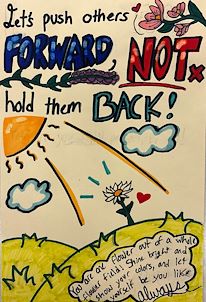 Let's push others
FORWARD, NOT
hold them BACK!
You are one flower out of a whole
flower field. Shine bright and
show your colors, and let
yourself be you like
always